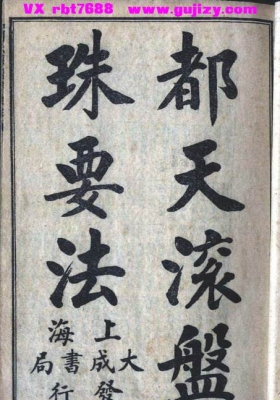 VX rbt7688 www.gujizy.com
都天滚盤
珠要法
上海
大成書局
發行